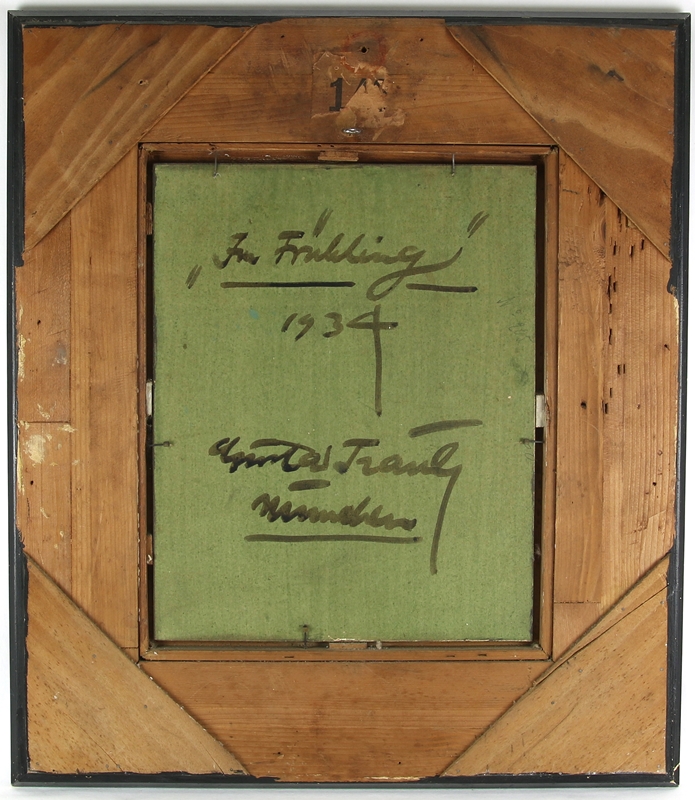 „Im Frühling"
1934
Gustav Traub
München